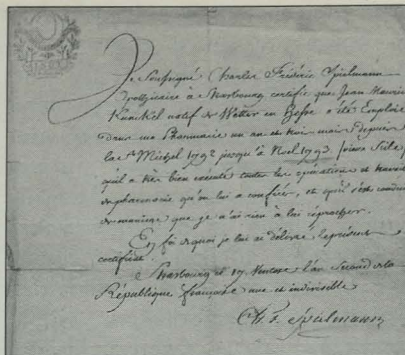 Je Soussigné Charles Frédéric Spielmann
Apothicaire à Strasbourg certifie que Jean
natif de Wetter en Hesse a été Emploié
dans ma Pharmacie un an et trois mois depuis
la St Michel 1792 jusqu'à Noel 1793.
qu'il a très bien executé toutes les opérations et
de pharmacie qu'on lui a confiées, et qu'il s'est
de manière que je n'ai rien à lui réprocher.
En foi de quoi je lui ai délivré le présent
certificat.
a Strasbourg le 17 Ventose l'an Second de la
République française une et indivisible
Ch. F. Spielmann